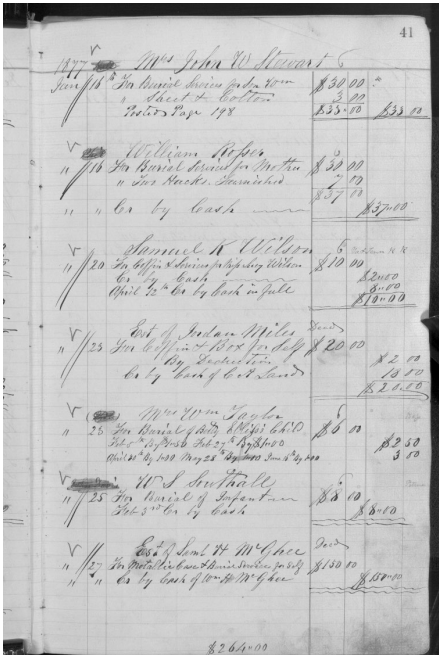 41
1877 Mrs John W Stewart
Jan 16th For Burial Services for Son Tom $30 00
" Sheet & Cotton 3 00
Posted Page 198 $33-00 $33 00
William Rosser
" 16 For Burial Services for Mother $30 00
" For Hacks Furnished 7 00
$37 00
" " Cr by Cash $37-00
Samuel K Wilson
" 20 For Coffin & Services for Wilson $10 00
Cr By Cash $2-00
April 12th Cr by Cash in full 8-00
$10-00
Est of Jordan Miles Dead
" 23 For Coffin & Box for Self $20 00
By Deduction $2 00
Cr by Cash of C A Land 18 00
$20-00
Mrs Wm Taylor
" 23 For Burial of Child $6 00
Feb 27th By $1-00 $2 50
April By 1-00 May 28th By June By 1-00 3 00
W S Southall
" 25 For Burial of Infant $8 00
Feb 3rd Cr by Cash $8-00
Est of Saml H McGhee Dead
" 27 For Metallic Case & Burial Services for Self $150 00
" " Cr By Cash of Wm H McGhee $150-00
$264-00